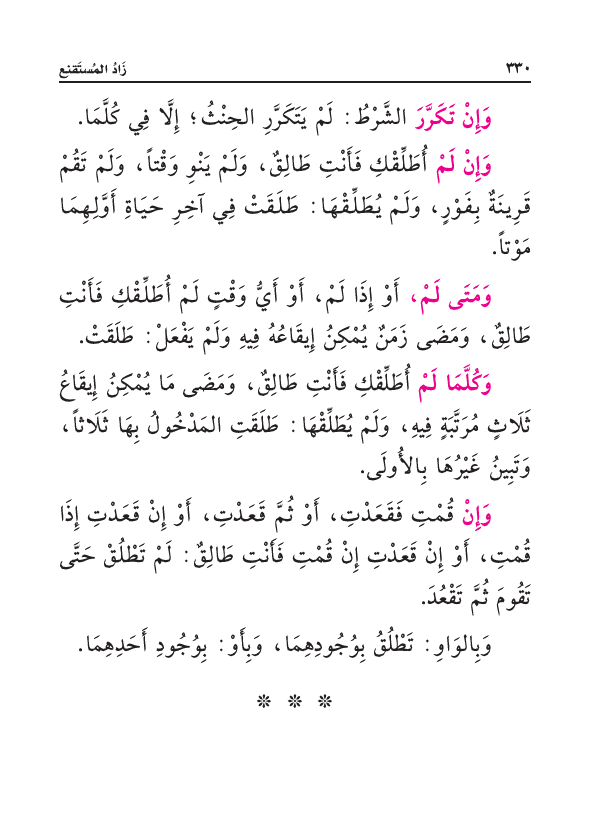 ٣٣٠ زَادُ المُسْتَقنِع
وَإِنْ تَكَرَّرَ الشَّرْطُ: لَمْ يَتَكَرَّرِ الحِنْثُ؛ إِلَّا فِي كُلَّمَا.
وَإِنْ لَمْ أُطَلِّقْكِ فَأَنْتِ طَالِقٌ، وَلَمْ يَنْوِ وَقْتاً، وَلَمْ تَقُمْ
قَرِينَةٌ بِفَوْرٍ، وَلَمْ يُطَلِّقْهَا: طَلَقَتْ فِي آخِرِ حَيَاةِ أَوَّلِهِمَا
مَوْتاً.
وَمَتَى لَمْ، أَوْ إِذَا لَمْ، أَوْ أَيُّ وَقْتٍ لَمْ أُطَلِّقْكِ فَأَنْتِ
طَالِقٌ، وَمَضَى زَمَنٌ يُمْكِنُ إِيقَاعُهُ فِيهِ وَلَمْ يَفْعَلْ: طَلَقَتْ.
وَكُلَّمَا لَمْ أُطَلِّقْكِ فَأَنْتِ طَالِقٌ، وَمَضَى مَا يُمْكِنُ إِيقَاعُ
ثَلَاثٍ مُرَتَّبَةٍ فِيهِ، وَلَمْ يُطَلِّقْهَا: طَلَقَتِ المَدْخُولُ بِهَا ثَلَاثاً،
وَتَبِينُ غَيْرُهَا بِالأُولَى.
وَإِنْ قُمْتِ فَقَعَدْتِ، أَوْ ثُمَّ قَعَدْتِ، أَوْ إِنْ قَعَدْتِ إِذَا
قُمْتِ، أَوْ إِنْ قَعَدْتِ إِنْ قُمْتِ فَأَنْتِ طَالِقٌ: لَمْ تَطْلُقْ حَتَّى
تَقُومَ ثُمَّ تَقْعُدَ.
وَبِالوَاوِ: تَطْلُقُ بِوُجُودِهِمَا، وَبِأَوْ: بِوُجُودِ أَحَدِهِمَا.